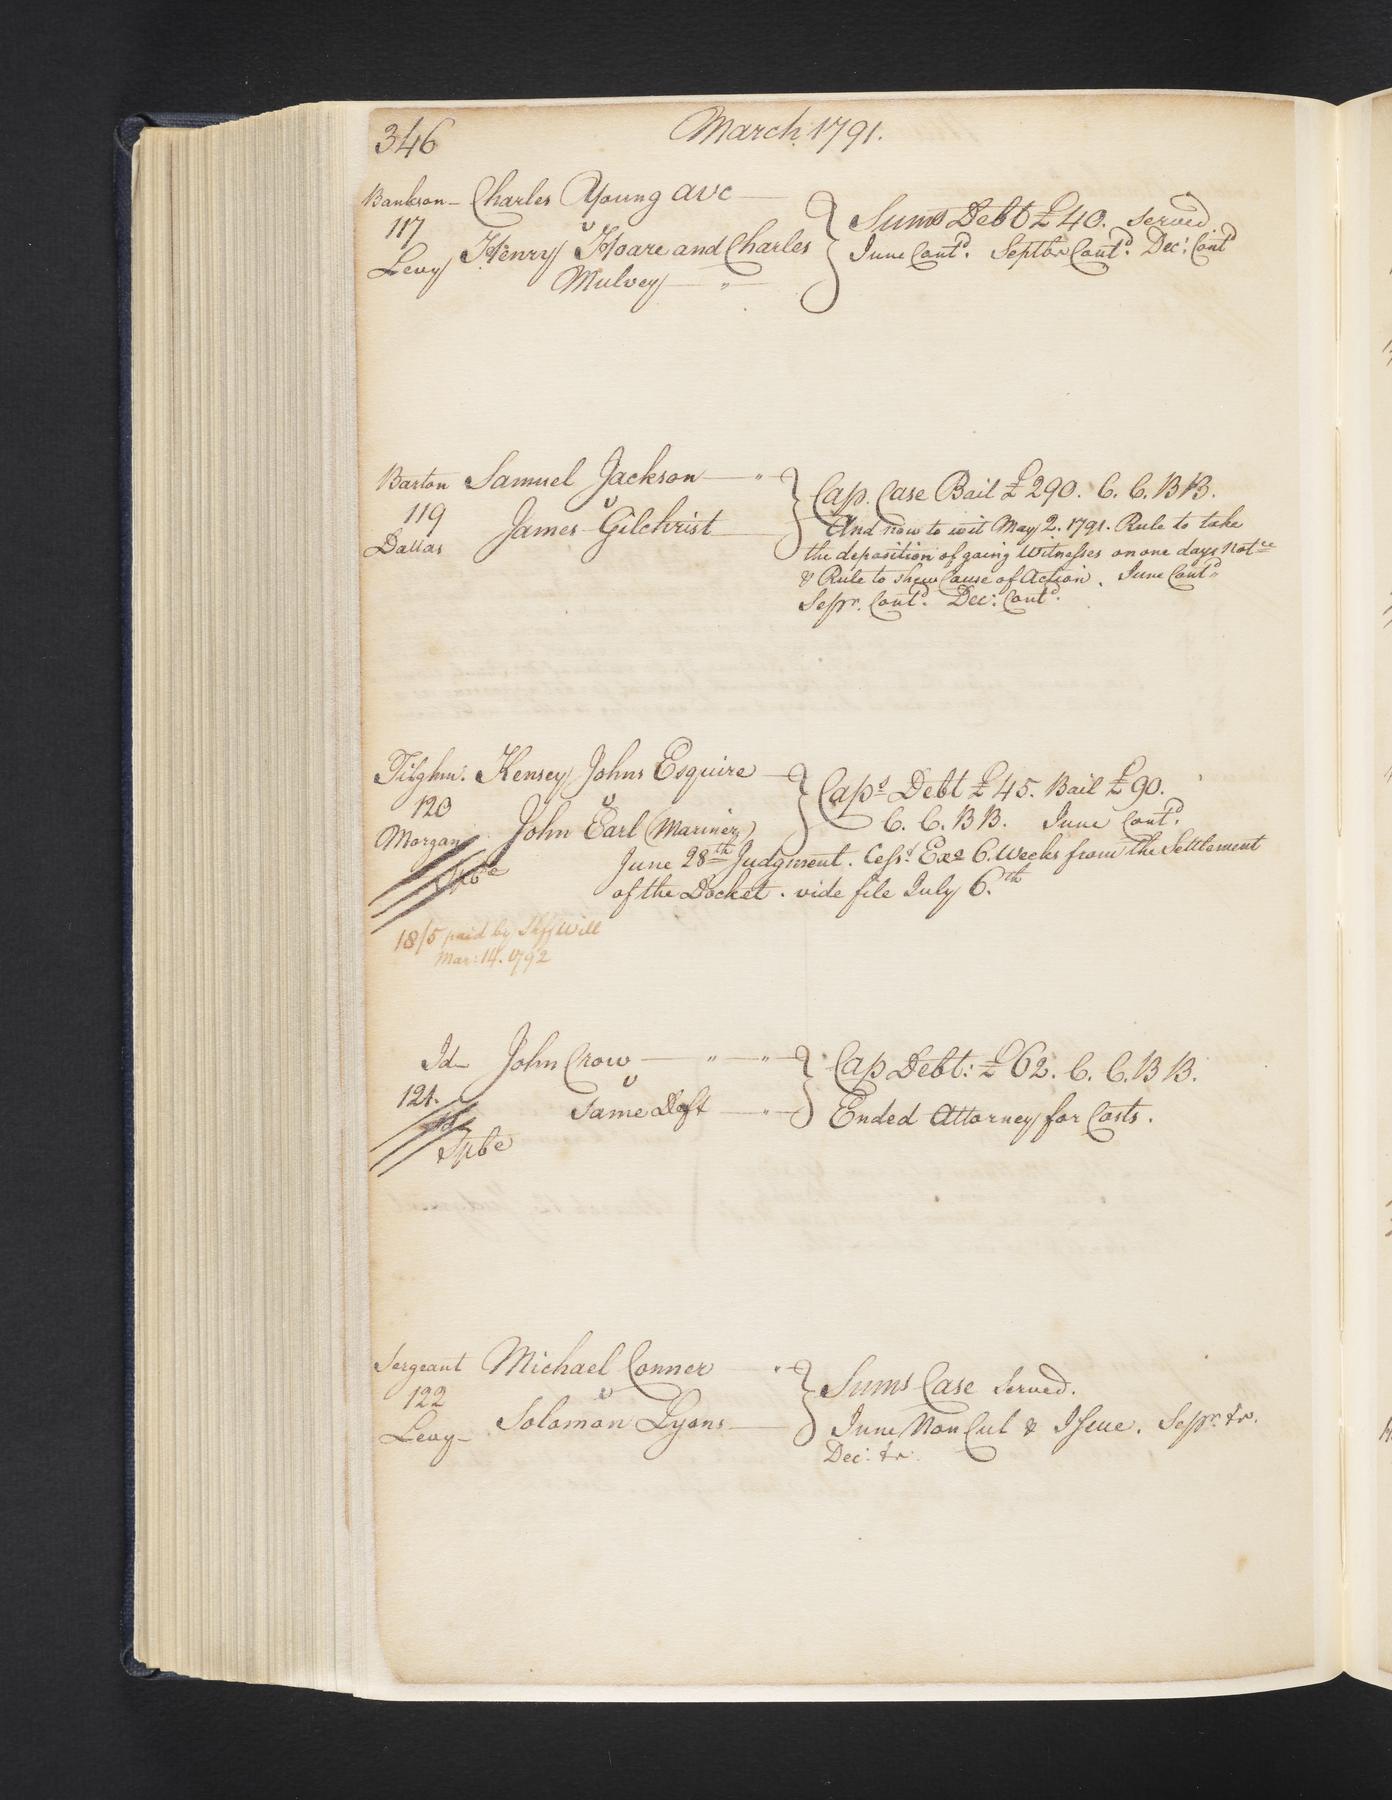 346
March 1791.
Bankson - Charles Young avc
117 v
Levy Henry Hoare and Charles
Mulvey
Sums Debt £40. Served
June Contd. Septbr Contd. Decr. Contd
Barton Samuel Jackson
119 v
Dallas James Gilchrist
Cap. Case Bail £290. C. C. B B.
And now to wit May 2. 1791. Rule to take
the deposition of going Witnesses on one days Notce
& Rule to shew Cause of Action. June Contd.
Sepr. Contd. Dec: Contd.
Tilghm. Kensey Johns Esquire
120 v
Morgan John Earl (Mariner)
Caps. Debt £45. Bail £90.
C. C. B B. June Contd.
June 28th Judgment. Cesst Exo 6. Weeks from the Settlement
of the Docket. vide file July 6.th
18/5 paid by Shff Will
Mar: 14. 1792
Id- John Crow
121. v
Same Deft
Cap Debt: £62. C. C. B B.
Ended Attorney for Costs.
Sergeant Michael Conner
122 v
Levy- Solomon Lyons
Sums Case Served.
June Non Cul & Issue. Sepr. tr.
Dec: tr.